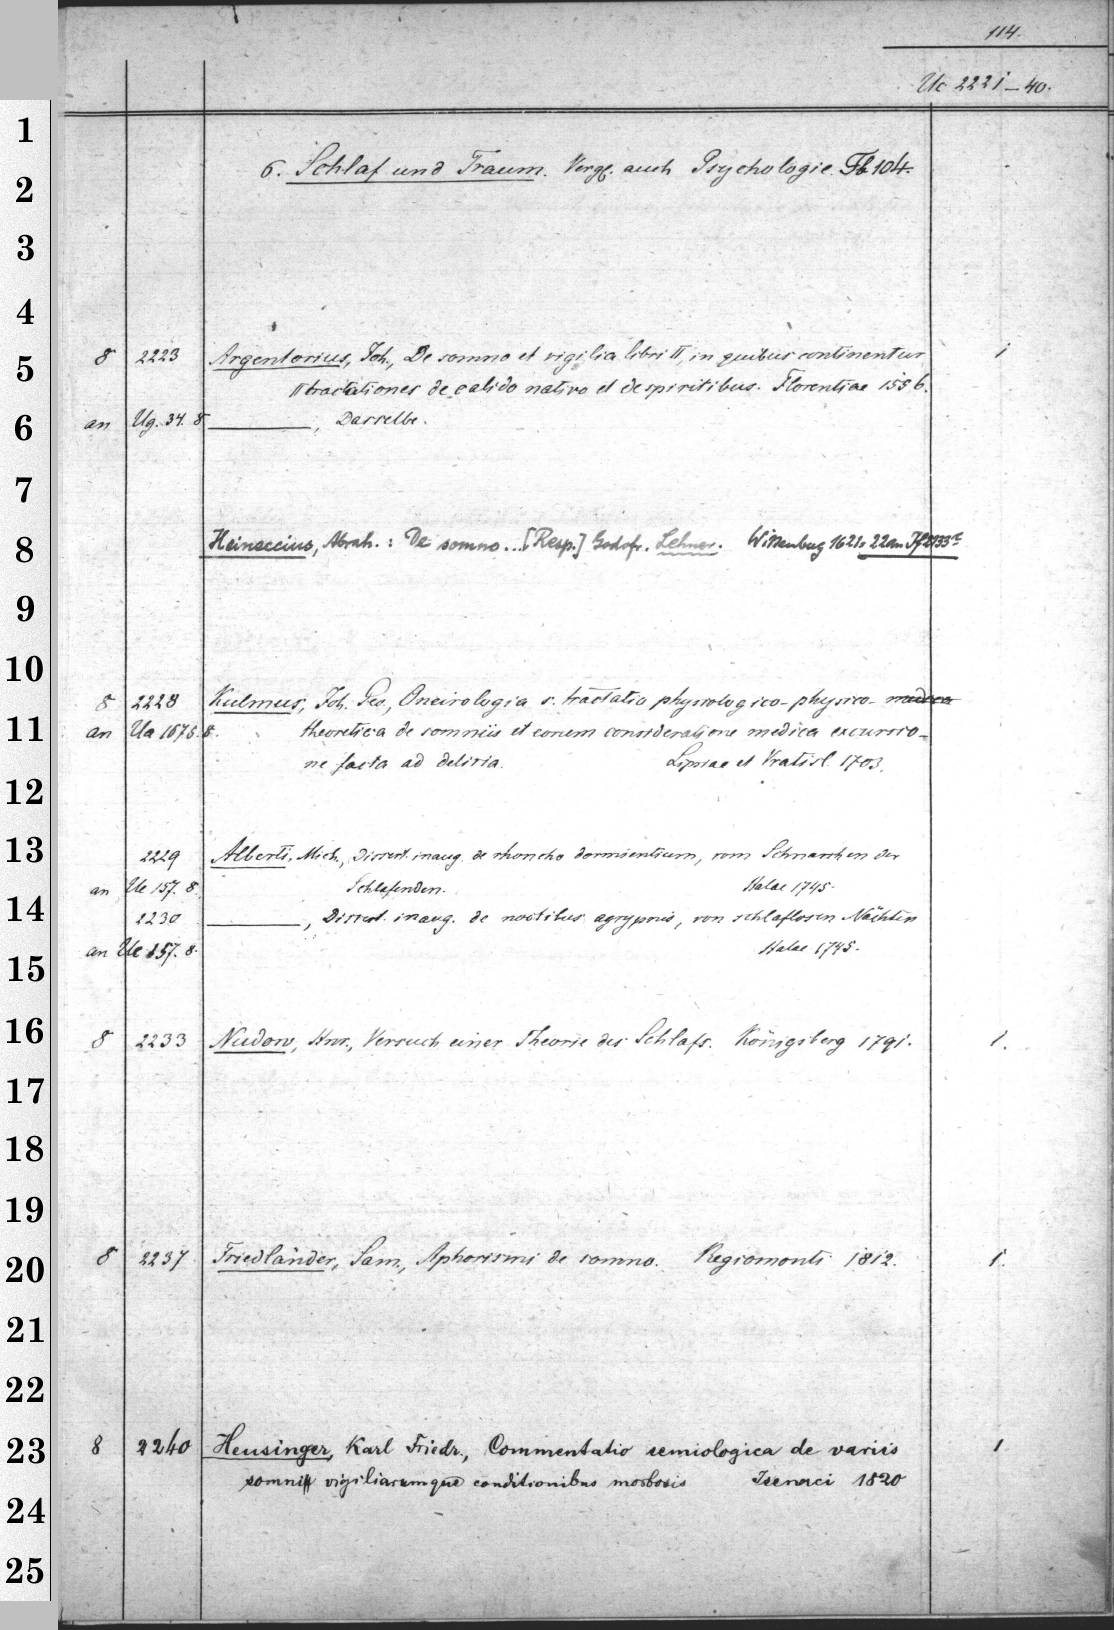 114.
Uc 2221-40.
1
2
6. Schlaf und Traum. Vergl. auch Psychologie Fb 104.
3
4
5
8 2223 Argentorius, Joh., De somno et vigilia libri II, in quibus continentur 1
II tractationes de calido nativo et de spiritibus. Florentiae 1556.
6
an Ug. 34. 8 ———, Dasselbe.
7
8
Heineccius, Abrah.: De somno... [Resp.] Godofr. Lehner. Wittenberg 1621.
9
10
8 2228 Kulmus, Joh. Geo., Oneirologia s. tractatio physiologico-physico- medica
11
an Ua 1675. 8. theoretica de somniis et eorum consideratione medica excursio-
ne facta ad deliria. Lipsiae et Vratisl. 1703.
12
13
2229 Alberti, Mich., Dissert. inaug. de rhoncho dormientium, vom Schnarchen der
an Ue 157. 8. Schlafenden. Halae 1745.
14
2230 ———, Dissert. inaug. de noctibus agrypnis, von schlaflosen Nächten
an Ue 157. 8. Halae 1745.
15
16
8 2233 Nudow, Hnr., Versuch einer Theorie des Schlafs. Königsberg 1791. 1.
17
18
19
20
8 2237 Friedländer, Sam., Aphorismi de somno. Regiomonti 1812. 1.
21
22
23
8 2240 Heusinger, Karl Friedr., Commentatio semiologica de variis 1
somni vigiliarumque conditionibus morbosis Isenaci 1820
24
25